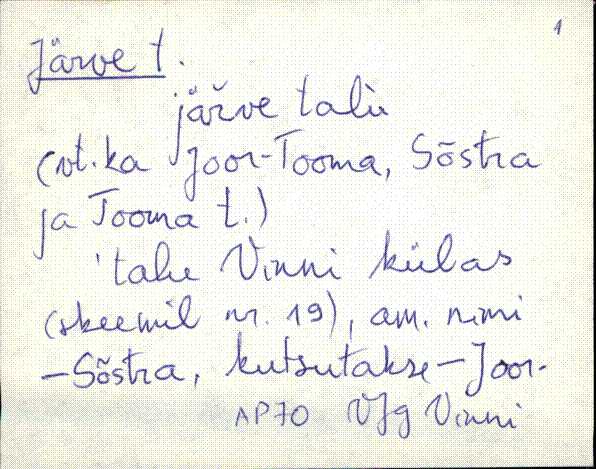 1
Järve t.
järve talu
(vt. ka Joor-Tooma, Sõstra
ja Tooma t.)
'talu Vinni külas
(skeemil nr. 19), am. nimi
-Sõstra, kutsutakse-Joor-
AP70 VJg Vinni